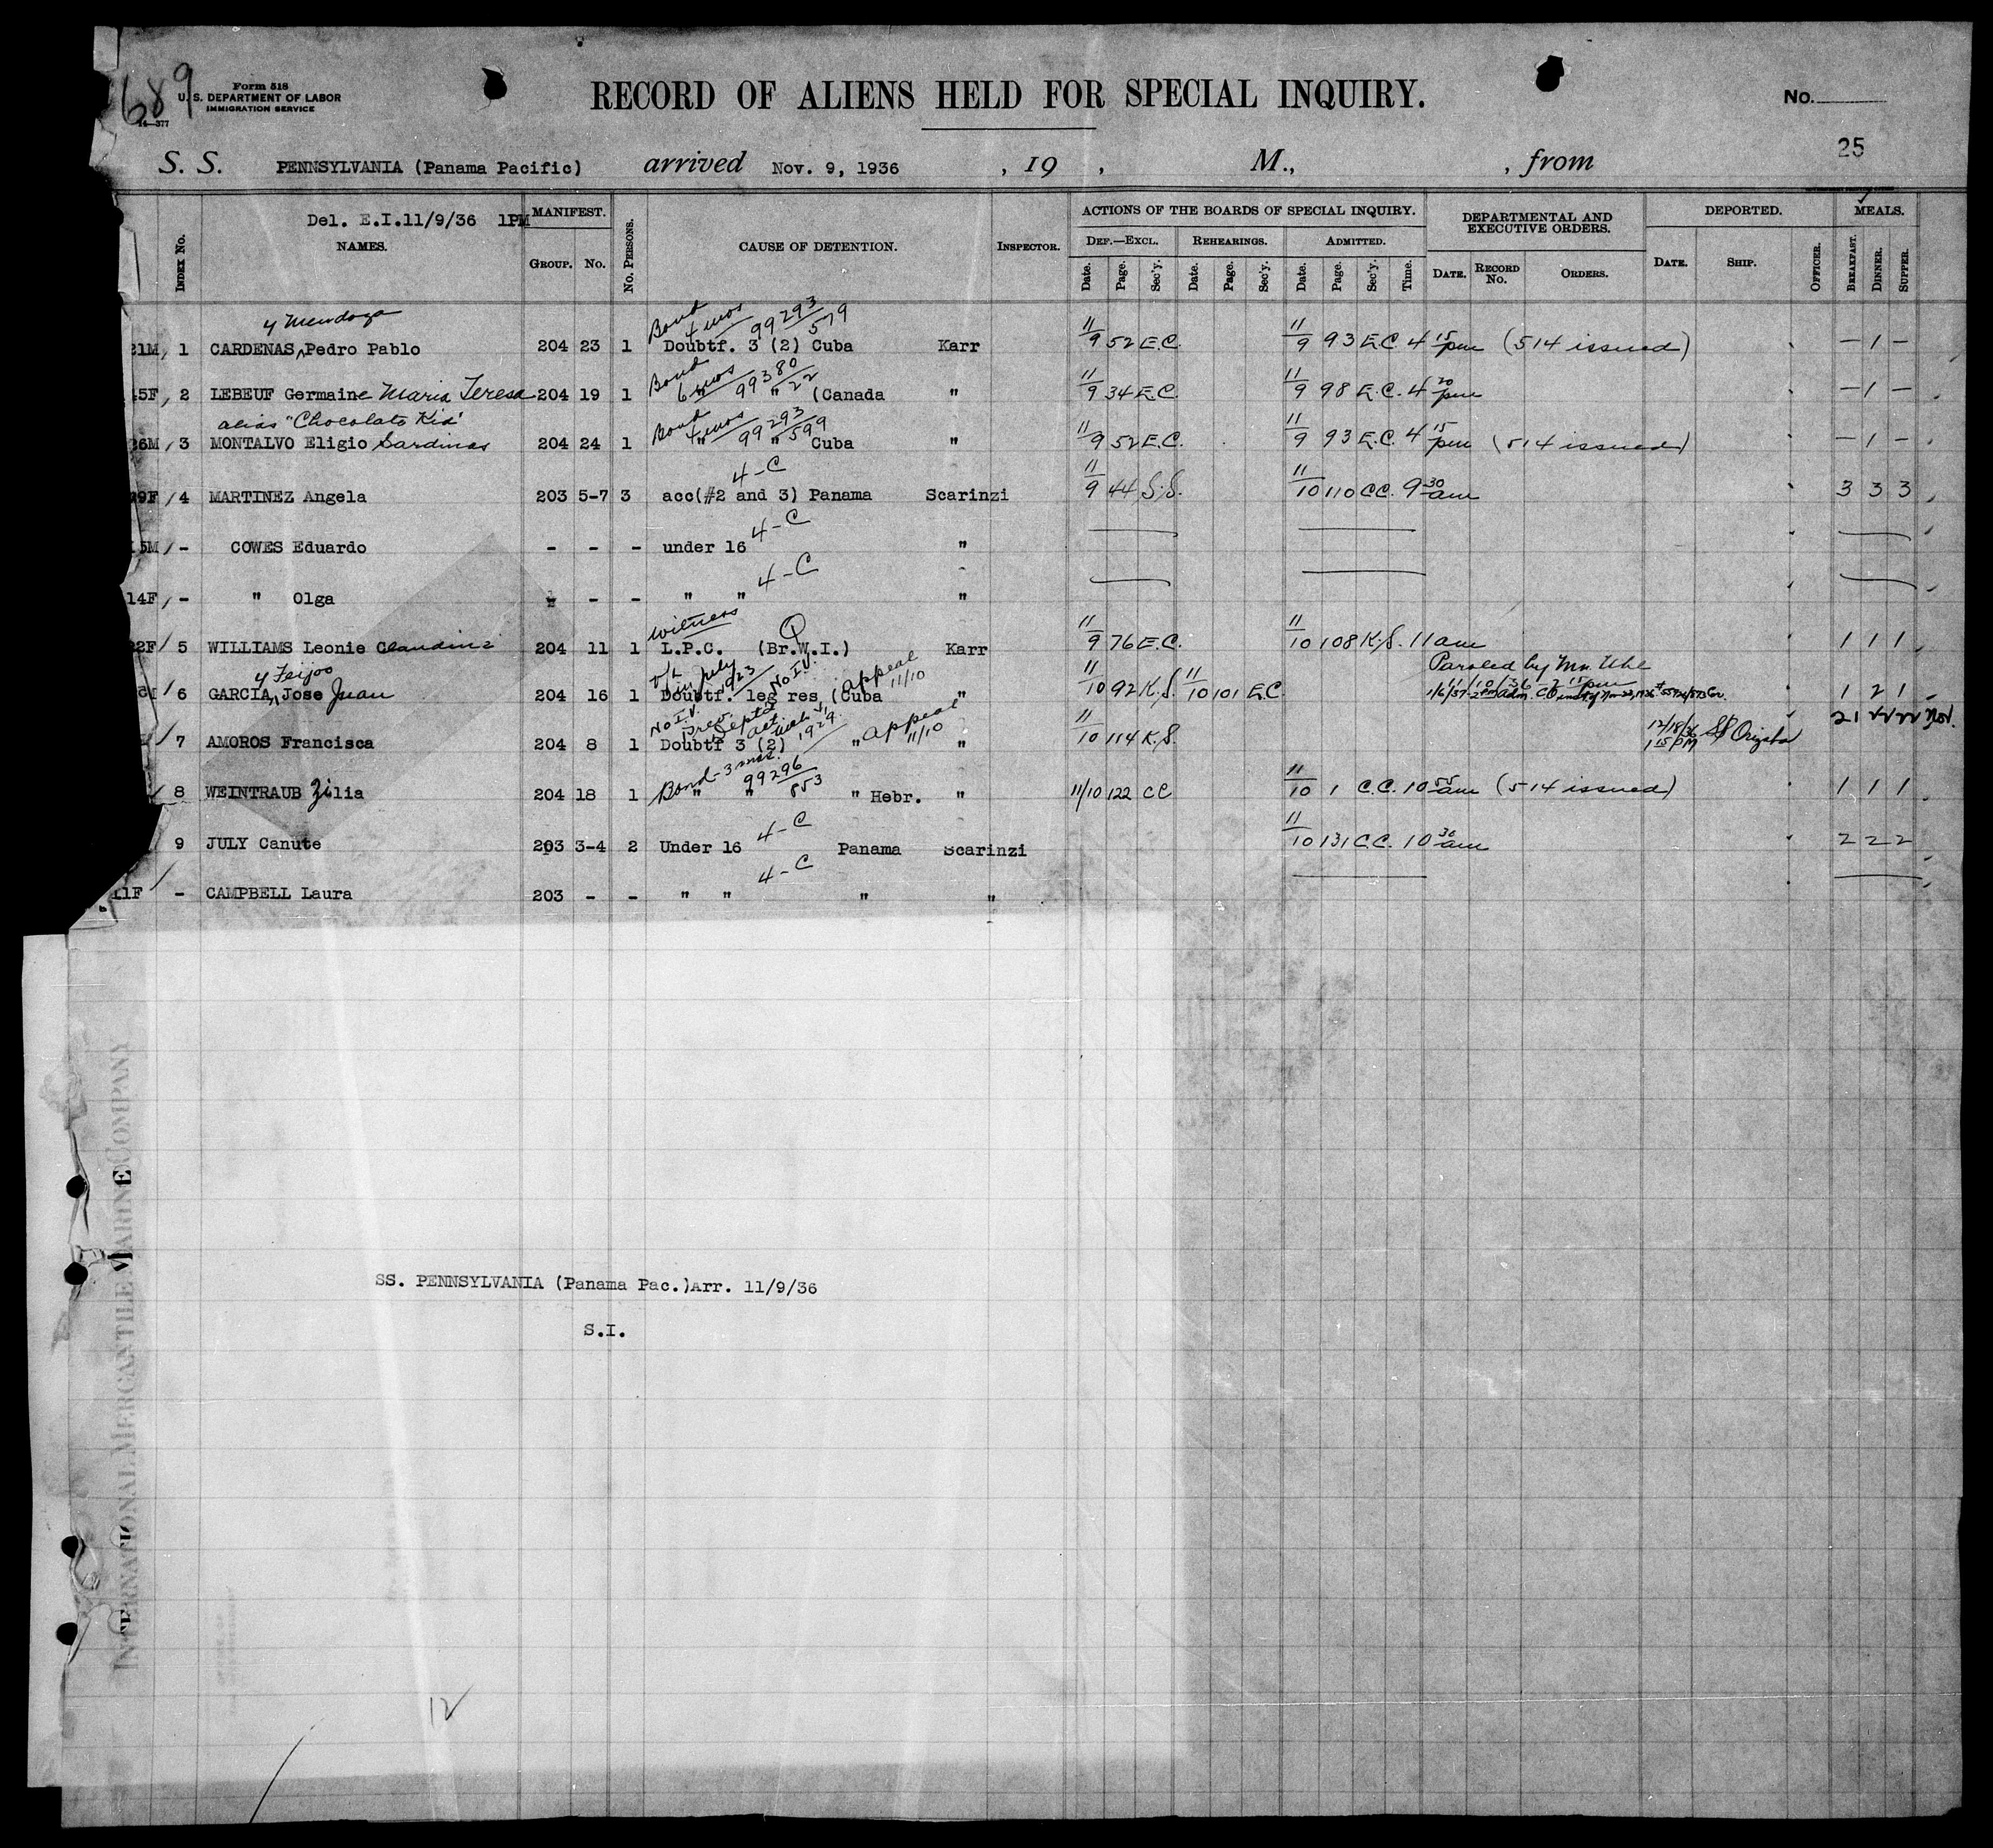 689
Form 518
U. S. DEPARTMENT OF LABOR
IMMIGRATION SERVICE
14—377
RECORD OF ALIENS HELD FOR SPECIAL INQUIRY.
No.
25
S. S. PENNSYLVANIA (Panama Pacific) arrived Nov. 9, 1936 , 19 , M., , from
Del. E.I.11/9/36 1PM
INDEX No. NAMES. MANIFEST. GROUP. No. No. PERSONS. CAUSE OF DETENTION. INSPECTOR. ACTIONS OF THE BOARDS OF SPECIAL INQUIRY. DEF.—EXCL. Date. Page. Sec'y. REHEARINGS. Date. Page. Sec'y. ADMITTED. Date. Page. Sec'y. Time. DEPARTMENTAL AND EXECUTIVE ORDERS. DATE. RECORD No. ORDERS. DEPORTED. DATE. SHIP. OFFICER. MEALS. BREAKFAST. DINNER. SUPPER.
y Mendoza Bond 4 mos 99293/579
21M, 1 CARDENAS, Pedro Pablo 204 23 1 Doubtf. 3 (2) Cuba Karr 11/9 52 E.C. 11/9 93 E.C. 4 15 pm (514 issued) — 1 —
Bond 6 mos 99380/22
45F, 2 LEBEUF Germaine Maria Teresa 204 19 1 " " (Canada " 11/9 34 E.C. 11/9 98 E.C. 4 20 pm — 1 —
alias "Chocolate Kid" Bond 4 mos 99293/599
26M, 3 MONTALVO Eligio Sardinas 204 24 1 " " Cuba " 11/9 52 E.C. 11/9 93 E.C. 4 15 pm (514 issued) — 1 —
4-C
29F / 4 MARTINEZ Angela 203 5-7 3 acc(#2 and 3) Panama Scarinzi 11/9 44 S.S. 11/10 110 C.C. 9 30 am 3 3 3
4-C
15M / - COWES Eduardo - - - under 16 "
4-C
14F, - " Olga - - " " "
Witness Q
22F / 5 WILLIAMS Leonie Claudina 204 11 1 L.P.C. (Br.W.I.) Karr 11/9 76 E.C. 11/10 108 K.S. 11 am 1 1 1
y Feijoo in July 1923 No I.V. appeal 11/10 Paroled by Mr. Uhl 11/10/36 - 2 15 pm
/ 6 GARCIA, Jose Juan 204 16 1 Doubtf. leg res (Cuba " 11/10 92 K.S. 11/10 101 E.C. 1/6/37 2 PM adm. 1 2 1
No I.V. prev. 1929. appeal 11/10 21 22 22 Nov.
7 AMOROS Francisca 204 8 1 Doubtf 3 (2) " " 11/10 114 K.S. 12/18/36 1 15 PM SS Orizaba
Bond - 3 mos. 99296/853
/ 8 WEINTRAUB Zilia 204 18 1 " " " Hebr. " 11/10 122 CC 11/10 1 C.C. 10 55 am (514 issued) 1 1 1
4-C
9 JULY Canute 203 3-4 2 Under 16 Panama Scarinzi 11/10 131 C.C. 10 30 am 2 2 2
4-C
11F / - CAMPBELL Laura 203 - - " " " "
SS. PENNSYLVANIA (Panama Pac.)Arr. 11/9/36
S.I.
INTERNATIONAL MERCANTILE MARINE COMPANY
12